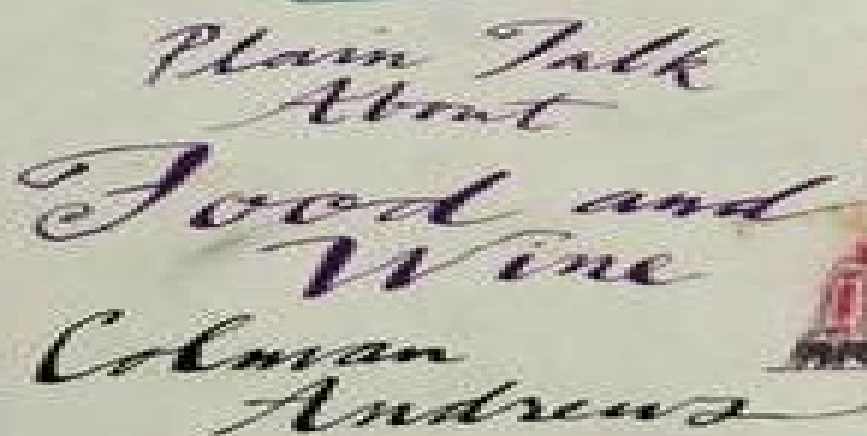 Plain Talk
About
Food and
Wine
Colman
Andrews